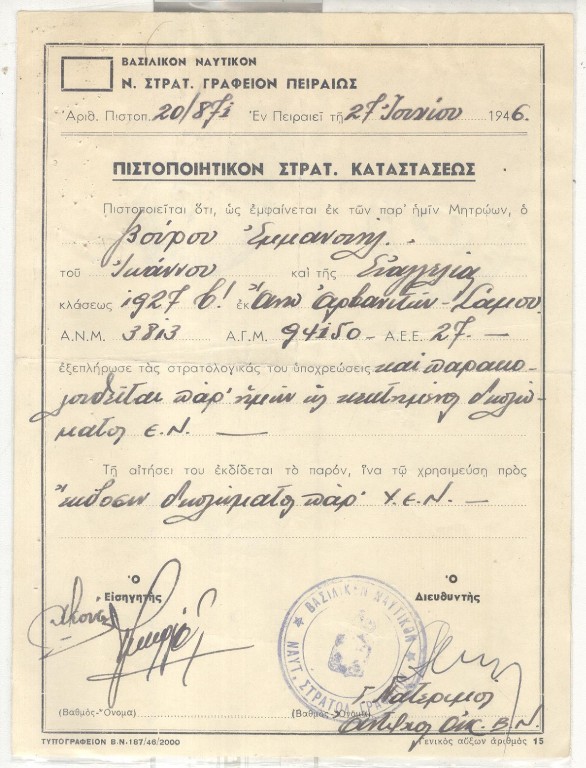 ΒΑΣΙΛΙΚΟΝ ΝΑΥΤΙΚΟΝ
Ν. ΣΤΡΑΤ. ΓΡΑΦΕΙΟΝ ΠΕΙΡΑΙΩΣ
Ἀριθ. Πιστοπ. 20/871 Ἐν Πειραιεῖ τῇ 27 Ἰουνίου 1946.
ΠΙΣΤΟΠΟΙΗΤΙΚΟΝ ΣΤΡΑΤ. ΚΑΤΑΣΤΑΣΕΩΣ
Πιστοποιεῖται ὅτι, ὡς ἐμφαίνεται ἐκ τῶν παρ' ἡμῖν Μητρῴων, ὁ
Βούρου Ἐμμανουὴλ
τοῦ Ἰωάννου καὶ τῆς Εὐαγγελία
κλάσεως 1927 β! ἐκ Ἄνω Ἀρβανιτῶν - Σάμου
Α.Ν.Μ. 3813 Α.Γ.Μ. 94150 - Α.Ε.Ε. 27. -
ἐξεπλήρωσε τὰς στρατολογικάς του ὑποχρεώσεις καὶ παρακο-
λουθεῖται παρ' ἡμῶν ὡς κεκτημένος διπλώ-
ματος Ε.Ν. -
Τῇ αἰτήσει του ἐκδίδεται τὸ παρόν, ἵνα τῷ χρησιμεύσῃ πρὸς
ἔκδοσιν διπλώματος παρ' Υ.Ε.Ν. -
Ὁ
Εἰσηγητὴς
Ὁ
Διευθυντὴς
ΒΑΣΙΛΙΚΟΝ ΝΑΥΤΙΚΟΝ
ΝΑΥΤ. ΣΤΡΑΤΟΛ. ΓΡΑΦΕΙΟΝ
(Βαθμὸς-Ὄνομα)
(Βαθμὸς-Ὄνομα)
Οἰκ. Β.Ν.
ΤΥΠΟΓΡΑΦΕΙΟΝ Β.Ν.-167/46/2000
Γενικὸς αὔξων ἀριθμὸς 15